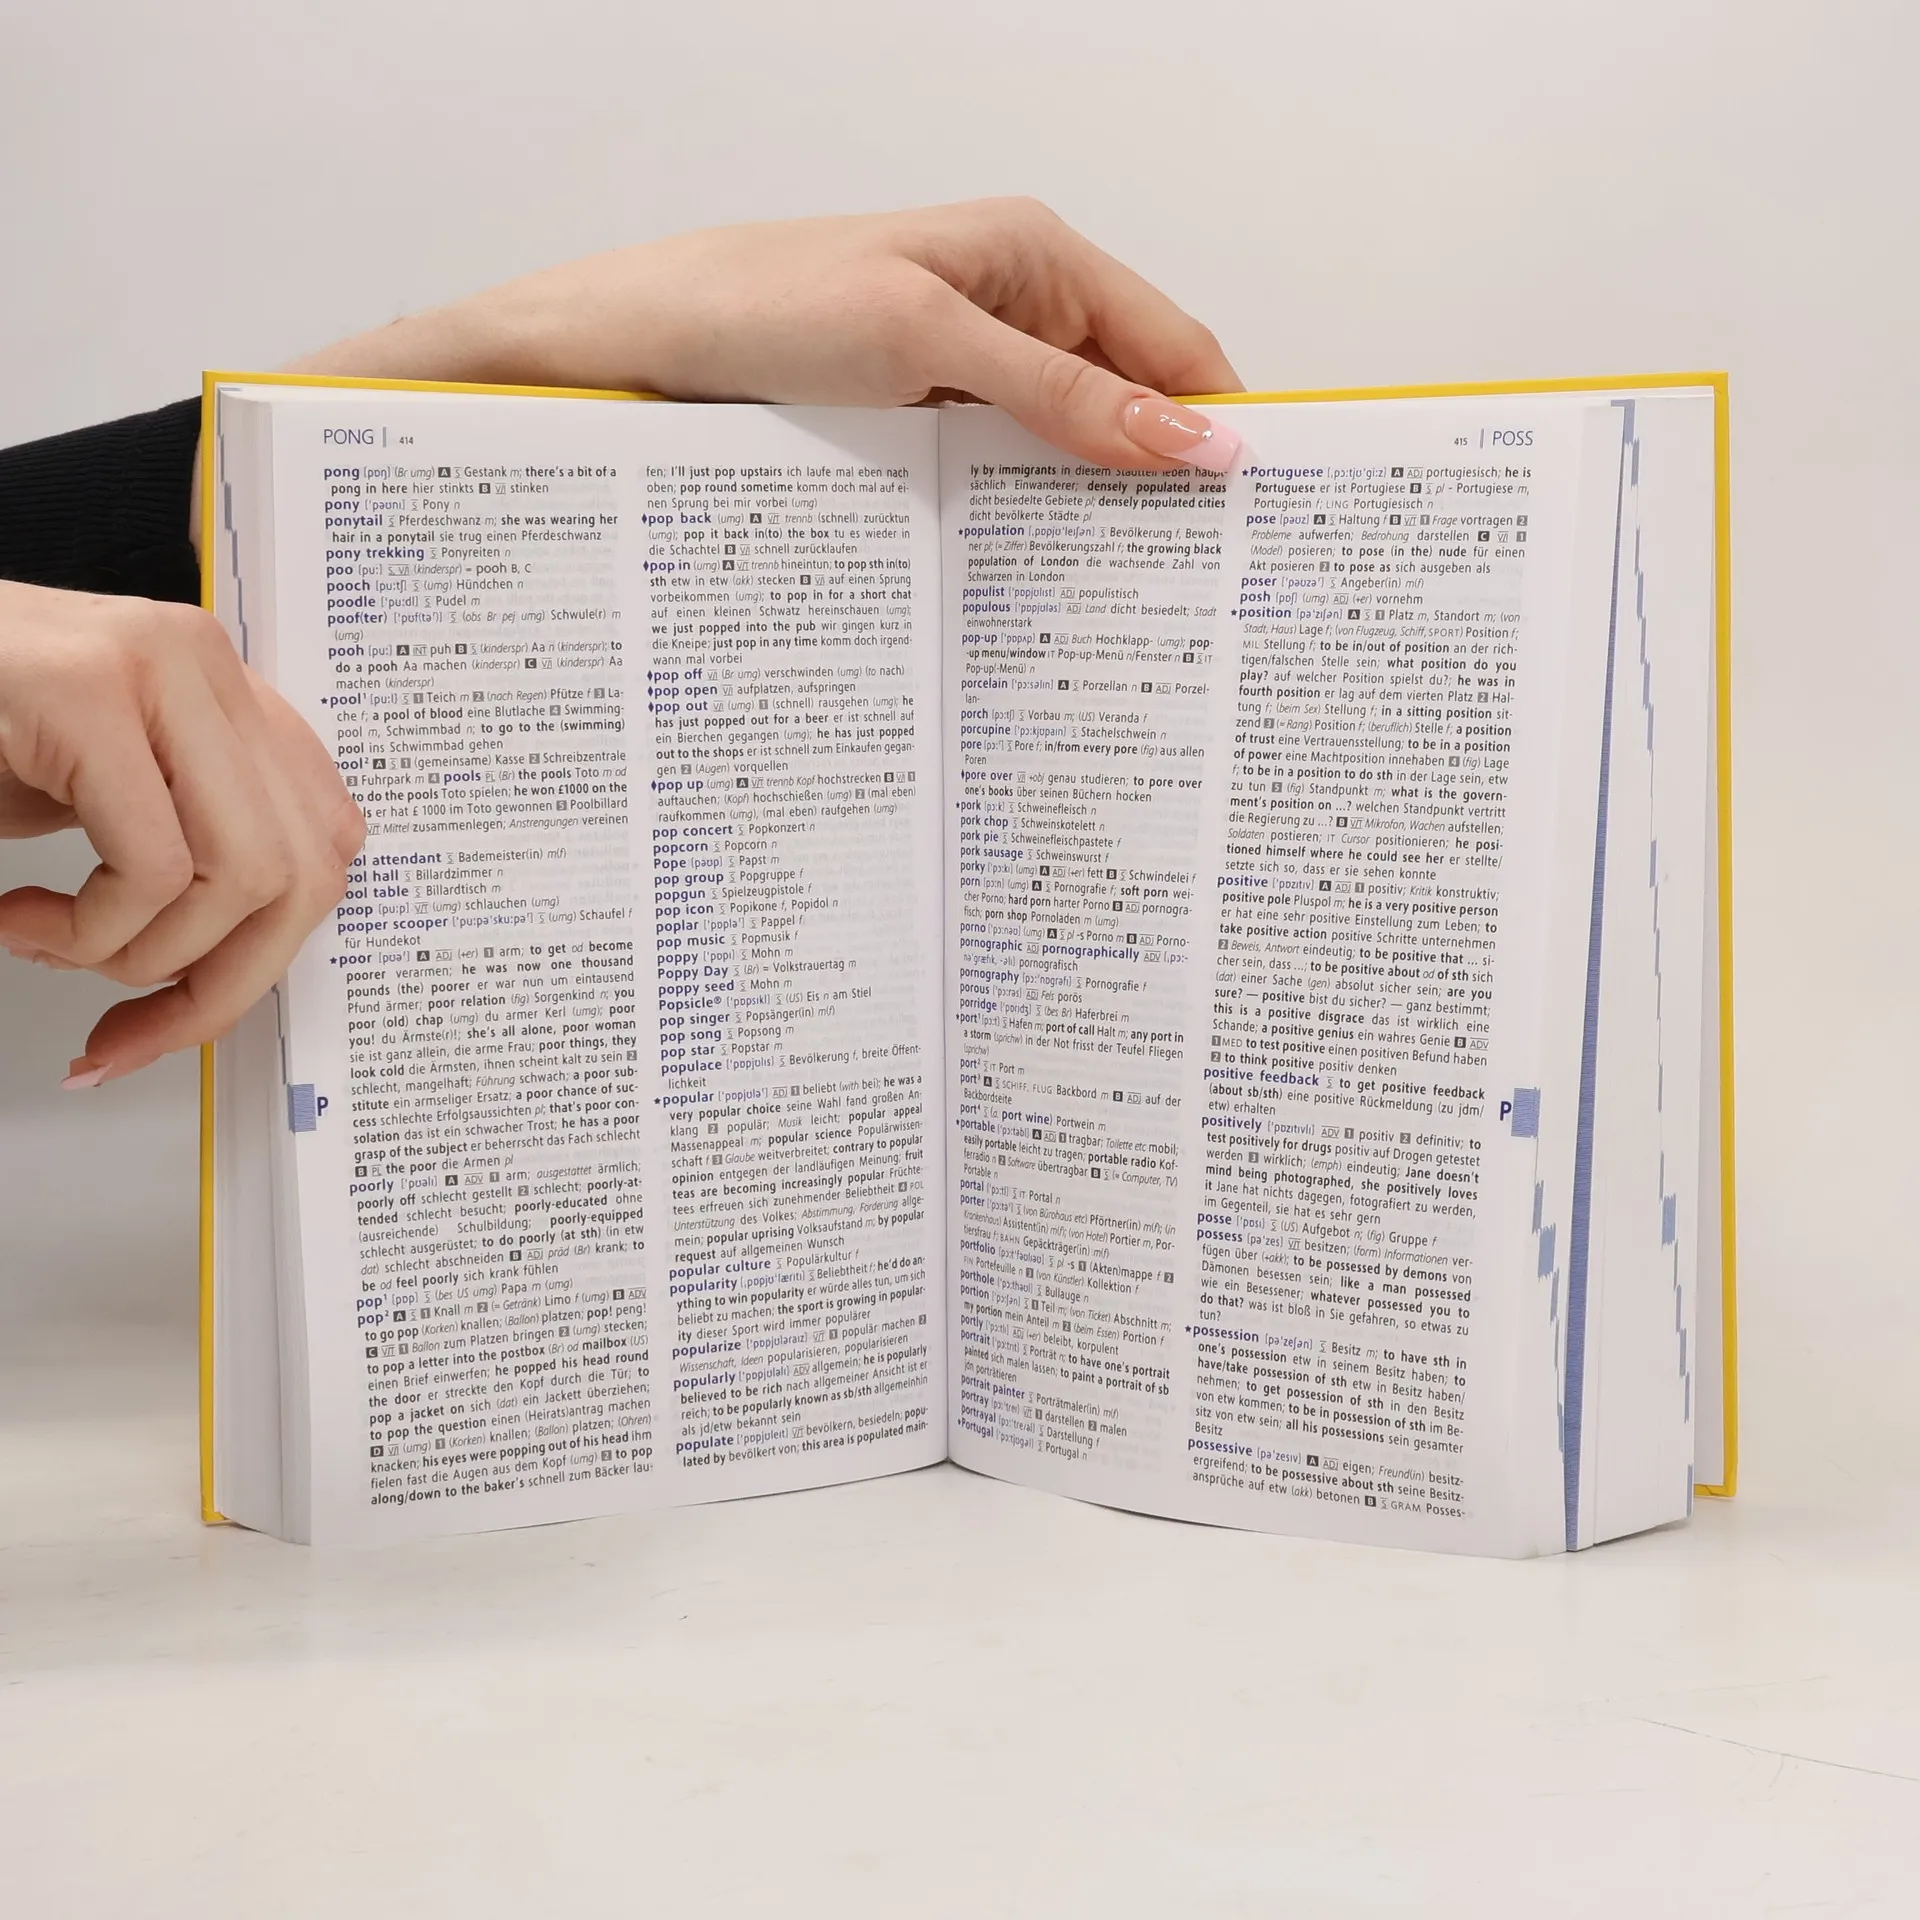 PONG | 414
pong [pɒŋ] (Br umg) A S Gestank m; there's a bit of a
pong in here hier stinkts B V/I stinken
pony ['pəʊnɪ] S Pony n
ponytail S Pferdeschwanz m; she was wearing her
hair in a ponytail sie trug einen Pferdeschwanz
pony trekking S Ponyreiten n
poo [puː] S, V/I (kinderspr) = pooh B, C
pooch [puːtʃ] S (umg) Hündchen n
poodle ['puːdl] S Pudel m
poof(ter) ['pʊf(təʳ)] S (obs Br pej umg) Schwule(r) m
(umg)
pooh [puː] A INT puh B S (kinderspr) Aa n (kinderspr); to
do a pooh Aa machen (kinderspr) C V/I (kinderspr) Aa
machen (kinderspr)
★pool¹ [puːl] S 1 Teich m 2 (nach Regen) Pfütze f 3 La-
che f; a pool of blood eine Blutlache 4 Swimming-
pool m, Schwimmbad n; to go to the (swimming)
pool ins Schwimmbad gehen
pool² A S 1 (gemeinsame) Kasse 2 Schreibzentrale
3 Fuhrpark m 4 pools PL (Br) the pools Toto m od
to do the pools Toto spielen; he won £1000 on the
er hat £ 1000 im Toto gewonnen 5 Poolbillard
V/T Mittel zusammenlegen; Anstrengungen vereinen
attendant S Bademeister(in) m(f)
hall S Billardzimmer n
table S Billardtisch m
poop [puːp] V/T (umg) schlauchen (umg)
pooper scooper ['puːpəˈskuːpəʳ] S (umg) Schaufel f
für Hundekot
★poor [pʊəʳ] A ADJ (+er) 1 arm; to get od become
poorer verarmen; he was now one thousand
pounds (the) poorer er war nun um eintausend
Pfund ärmer; poor relation (fig) Sorgenkind n; you
poor (old) chap (umg) du armer Kerl (umg); poor
you! du Ärmste(r)!; she's all alone, poor woman
sie ist ganz allein, die arme Frau; poor things, they
look cold die Ärmsten, ihnen scheint kalt zu sein 2
schlecht, mangelhaft; Führung schwach; a poor sub-
stitute ein armseliger Ersatz; a poor chance of suc-
cess schlechte Erfolgsaussichten pl; that's poor con-
solation das ist ein schwacher Trost; he has a poor
grasp of the subject er beherrscht das Fach schlecht
B PL the poor die Armen pl
poorly ['pʊəlɪ] A ADV 1 arm; ausgestattet ärmlich;
poorly off schlecht gestellt 2 schlecht; poorly-at-
tended schlecht besucht; poorly-educated ohne
(ausreichende) Schulbildung; poorly-equipped
schlecht ausgerüstet; to do poorly (at sth) (in etw
dat) schlecht abschneiden B ADJ präd (Br) krank; to
be od feel poorly sich krank fühlen
pop¹ [pɒp] S (bes US umg) Papa m (umg)
pop² A S 1 Knall m 2 (= Getränk) Limo f (umg) B ADV
to go pop (Korken) knallen; (Ballon) platzen; pop! peng!
C V/T 1 Ballon zum Platzen bringen 2 (umg) stecken;
to pop a letter into the postbox (Br) od mailbox (US)
einen Brief einwerfen; he popped his head round
the door er streckte den Kopf durch die Tür; to
pop a jacket on sich (dat) ein Jackett überziehen;
to pop the question einen (Heirats)antrag machen
D V/I (umg) 1 (Korken) knallen; (Ballon) platzen; (Ohren)
knacken; his eyes were popping out of his head ihm
fielen fast die Augen aus dem Kopf (umg) 2 to pop
along/down to the baker's schnell zum Bäcker lau-
P
fen; I'll just pop upstairs ich laufe mal eben nach
oben; pop round sometime komm doch mal auf ei-
nen Sprung bei mir vorbei (umg)
♦pop back (umg) A V/T trennb (schnell) zurücktun
(umg); pop it back in(to) the box tu es wieder in
die Schachtel B V/I schnell zurücklaufen
♦pop in (umg) A V/T trennb hineintun; to pop sth in(to)
sth etw in etw (akk) stecken B V/I auf einen Sprung
vorbeikommen (umg); to pop in for a short chat
auf einen kleinen Schwatz hereinschauen (umg);
we just popped into the pub wir gingen kurz in
die Kneipe; just pop in any time komm doch irgend-
wann mal vorbei
♦pop off V/I (Br umg) verschwinden (umg) (to nach)
♦pop open V/I aufplatzen, aufspringen
♦pop out V/I (umg) 1 (schnell) rausgehen (umg); he
has just popped out for a beer er ist schnell auf
ein Bierchen gegangen (umg); he has just popped
out to the shops er ist schnell zum Einkaufen gegan-
gen 2 (Augen) vorquellen
♦pop up (umg) A V/T trennb Kopf hochstrecken B V/I 1
auftauchen; (Kopf) hochschießen (umg) 2 (mal eben)
raufkommen (umg), (mal eben) raufgehen (umg)
pop concert S Popkonzert n
popcorn S Popcorn n
Pope [pəʊp] S Papst m
pop group S Popgruppe f
popgun S Spielzeugpistole f
pop icon S Popikone f, Popidol n
poplar ['pɒpləʳ] S Pappel f
pop music S Popmusik f
poppy ['pɒpɪ] S Mohn m
Poppy Day S (Br) = Volkstrauertag m
poppy seed S Mohn m
Popsicle® ['pɒpsɪkl] S (US) Eis n am Stiel
pop singer S Popsänger(in) m(f)
pop song S Popsong m
pop star S Popstar m
populace ['pɒpjʊlɪs] S Bevölkerung f, breite Öffent-
lichkeit
★popular ['pɒpjʊləʳ] ADJ 1 beliebt (with bei); he was a
very popular choice seine Wahl fand großen An-
klang 2 populär; Musik leicht; popular appeal
Massenappeal m; popular science Populärwissen-
schaft f 3 Glaube weitverbreitet; contrary to popular
opinion entgegen der landläufigen Meinung; fruit
teas are becoming increasingly popular Früchte-
tees erfreuen sich zunehmender Beliebtheit 4 POL
Unterstützung des Volkes; Abstimmung, Forderung allge-
mein; popular uprising Volksaufstand m; by popular
request auf allgemeinen Wunsch
popular culture S Populärkultur f
popularity [ˌpɒpjʊˈlærɪtɪ] S Beliebtheit f; he'd do an-
ything to win popularity er würde alles tun, um sich
beliebt zu machen; the sport is growing in popular-
ity dieser Sport wird immer populärer
popularize ['pɒpjʊləraɪz] V/T 1 populär machen 2
Wissenschaft, Ideen popularisieren, popularisieren
popularly ['pɒpjʊləlɪ] ADV allgemein; he is popularly
believed to be rich nach allgemeiner Ansicht ist er
reich; to be popularly known as sb/sth allgemeinhin
als jd/etw bekannt sein
populate ['pɒpjʊleɪt] V/T bevölkern, besiedeln; popu-
lated by bevölkert von; this area is populated main-
415 | POSS
ly by immigrants in diesem Stadtteil leben haupt-
sächlich Einwanderer; densely populated areas
dicht besiedelte Gebiete pl; densely populated cities
dicht bevölkerte Städte pl
★population [ˌpɒpjʊˈleɪʃən] S Bevölkerung f, Bewoh-
ner pl; (= Ziffer) Bevölkerungszahl f; the growing black
population of London die wachsende Zahl von
Schwarzen in London
populist ['pɒpjʊlɪst] ADJ populistisch
populous ['pɒpjʊləs] ADJ Land dicht besiedelt; Stadt
einwohnerstark
pop-up ['pɒpʌp] A ADJ Buch Hochklapp- (umg); pop-
-up menu/window IT Pop-up-Menü n/Fenster n B S IT
Pop-up(-Menü) n
porcelain ['pɔːsəlɪn] A S Porzellan n B ADJ Porzel-
lan-
porch [pɔːtʃ] S Vorbau m; (US) Veranda f
porcupine ['pɔːkjʊpaɪn] S Stachelschwein n
pore [pɔːʳ] S Pore f; in/from every pore (fig) aus allen
Poren
♦pore over V/I +obj genau studieren; to pore over
one's books über seinen Büchern hocken
★pork [pɔːk] S Schweinefleisch n
pork chop S Schweinskotelett n
pork pie S Schweinefleischpastete f
pork sausage S Schweinswurst f
porky ['pɔːkɪ] (umg) A ADJ (+er) fett B S Schwindelei f
porn [pɔːn] (umg) A S Pornografie f; soft porn wei-
cher Porno; hard porn harter Porno B ADJ pornogra-
fisch; porn shop Pornoladen m (umg)
porno ['pɔːnəʊ] (umg) A S pl -s Porno m B ADJ Porno-
pornographic ADJ pornographically ADV [ˌpɔː-
nəˈgræfɪk, -əlɪ] pornografisch
pornography [pɔːˈnɒgrəfɪ] S Pornografie f
porous ['pɔːrəs] ADJ Fels porös
porridge ['pɒrɪdʒ] S (bes Br) Haferbrei m
★port¹ [pɔːt] S Hafen m; port of call Halt m; any port in
a storm (sprichw) in der Not frisst der Teufel Fliegen
(sprichw)
port² S IT Port m
port³ A S SCHIFF, FLUG Backbord m B ADJ auf der
Backbordseite
port⁴ S (a. port wine) Portwein m
★portable ['pɔːtəbl] A ADJ 1 tragbar; Toilette etc mobil;
easily portable leicht zu tragen; portable radio Kof-
ferradio n 2 Software übertragbar B S (= Computer, TV)
Portable n
portal ['pɔːtl] S IT Portal n
porter ['pɔːtəʳ] S (von Bürohaus etc) Pförtner(in) m(f); (in
Krankenhaus) Assistent(in) m(f); (von Hotel) Portier m, Por-
tiersfrau f; BAHN Gepäckträger(in) m(f)
portfolio [pɔːtˈfəʊlɪəʊ] S pl -s 1 (Akten)mappe f 2
FIN Portefeuille n 3 (von Künstler) Kollektion f
porthole ['pɔːthəʊl] S Bullauge n
portion ['pɔːʃən] S 1 Teil m; (von Ticket) Abschnitt m;
my portion mein Anteil m 2 (beim Essen) Portion f
portly ['pɔːtlɪ] ADJ (+er) beleibt, korpulent
portrait ['pɔːtrɪt] S Porträt n; to have one's portrait
painted sich malen lassen; to paint a portrait of sb
jdn porträtieren
portrait painter S Porträtmaler(in) m(f)
portray [pɔːˈtreɪ] V/T 1 darstellen 2 malen
portrayal [pɔːˈtreɪəl] S Darstellung f
★Portugal ['pɔːtjʊgəl] S Portugal n
★Portuguese [ˌpɔːtjʊˈgiːz] A ADJ portugiesisch; he is
Portuguese er ist Portugiese B S pl - Portugiese m,
Portugiesin f; LING Portugiesisch n
pose [pəʊz] A S Haltung f B V/T 1 Frage vortragen 2
Probleme aufwerfen; Bedrohung darstellen C V/I 1
(Model) posieren; to pose (in the) nude für einen
Akt posieren 2 to pose as sich ausgeben als
poser ['pəʊzəʳ] S Angeber(in) m(f)
posh [pɒʃ] (umg) ADJ (+er) vornehm
★position [pəˈzɪʃən] A S 1 Platz m, Standort m; (von
Stadt, Haus) Lage f; (von Flugzeug, Schiff, SPORT) Position f;
MIL Stellung f; to be in/out of position an der rich-
tigen/falschen Stelle sein; what position do you
play? auf welcher Position spielst du?; he was in
fourth position er lag auf dem vierten Platz 2 Hal-
tung f; (beim Sex) Stellung f; in a sitting position sit-
zend 3 (= Rang) Position f; (beruflich) Stelle f; a position
of trust eine Vertrauensstellung; to be in a position
of power eine Machtposition innehaben 4 (fig) Lage
f; to be in a position to do sth in der Lage sein, etw
zu tun 5 (fig) Standpunkt m; what is the govern-
ment's position on ...? welchen Standpunkt vertritt
die Regierung zu ...? B V/T Mikrofon, Wachen aufstellen;
Soldaten postieren; IT Cursor positionieren; he posi-
tioned himself where he could see her er stellte/
setzte sich so, dass er sie sehen konnte
positive ['pɒzɪtɪv] A ADJ 1 positiv; Kritik konstruktiv;
positive pole Pluspol m; he is a very positive person
er hat eine sehr positive Einstellung zum Leben; to
take positive action positive Schritte unternehmen
2 Beweis, Antwort eindeutig; to be positive that ... si-
cher sein, dass ...; to be positive about od of sth sich
(dat) einer Sache (gen) absolut sicher sein; are you
sure? — positive bist du sicher? — ganz bestimmt;
this is a positive disgrace das ist wirklich eine
Schande; a positive genius ein wahres Genie B ADV
1 MED to test positive einen positiven Befund haben
2 to think positive positiv denken
positive feedback S to get positive feedback
(about sb/sth) eine positive Rückmeldung (zu jdm/
etw) erhalten
positively ['pɒzɪtɪvlɪ] ADV 1 positiv 2 definitiv; to
test positively for drugs positiv auf Drogen getestet
werden 3 wirklich; (emph) eindeutig; Jane doesn't
mind being photographed, she positively loves
it Jane hat nichts dagegen, fotografiert zu werden,
im Gegenteil, sie hat es sehr gern
posse ['pɒsɪ] S (US) Aufgebot n; (fig) Gruppe f
possess [pəˈzes] V/T besitzen; (form) Informationen ver-
fügen über (+akk); to be possessed by demons von
Dämonen besessen sein; like a man possessed
wie ein Besessener; whatever possessed you to
do that? was ist bloß in Sie gefahren, so etwas zu
tun?
★possession [pəˈzeʃən] S Besitz m; to have sth in
one's possession etw in seinem Besitz haben; to
have/take possession of sth etw in Besitz haben/
nehmen; to get possession of sth in den Besitz
von etw kommen; to be in possession of sth im Be-
sitz von etw sein; all his possessions sein gesamter
Besitz
possessive [pəˈzesɪv] A ADJ eigen; Freund(in) besitz-
ergreifend; to be possessive about sth seine Besitz-
ansprüche auf etw (akk) betonen B S GRAM Posses-
P